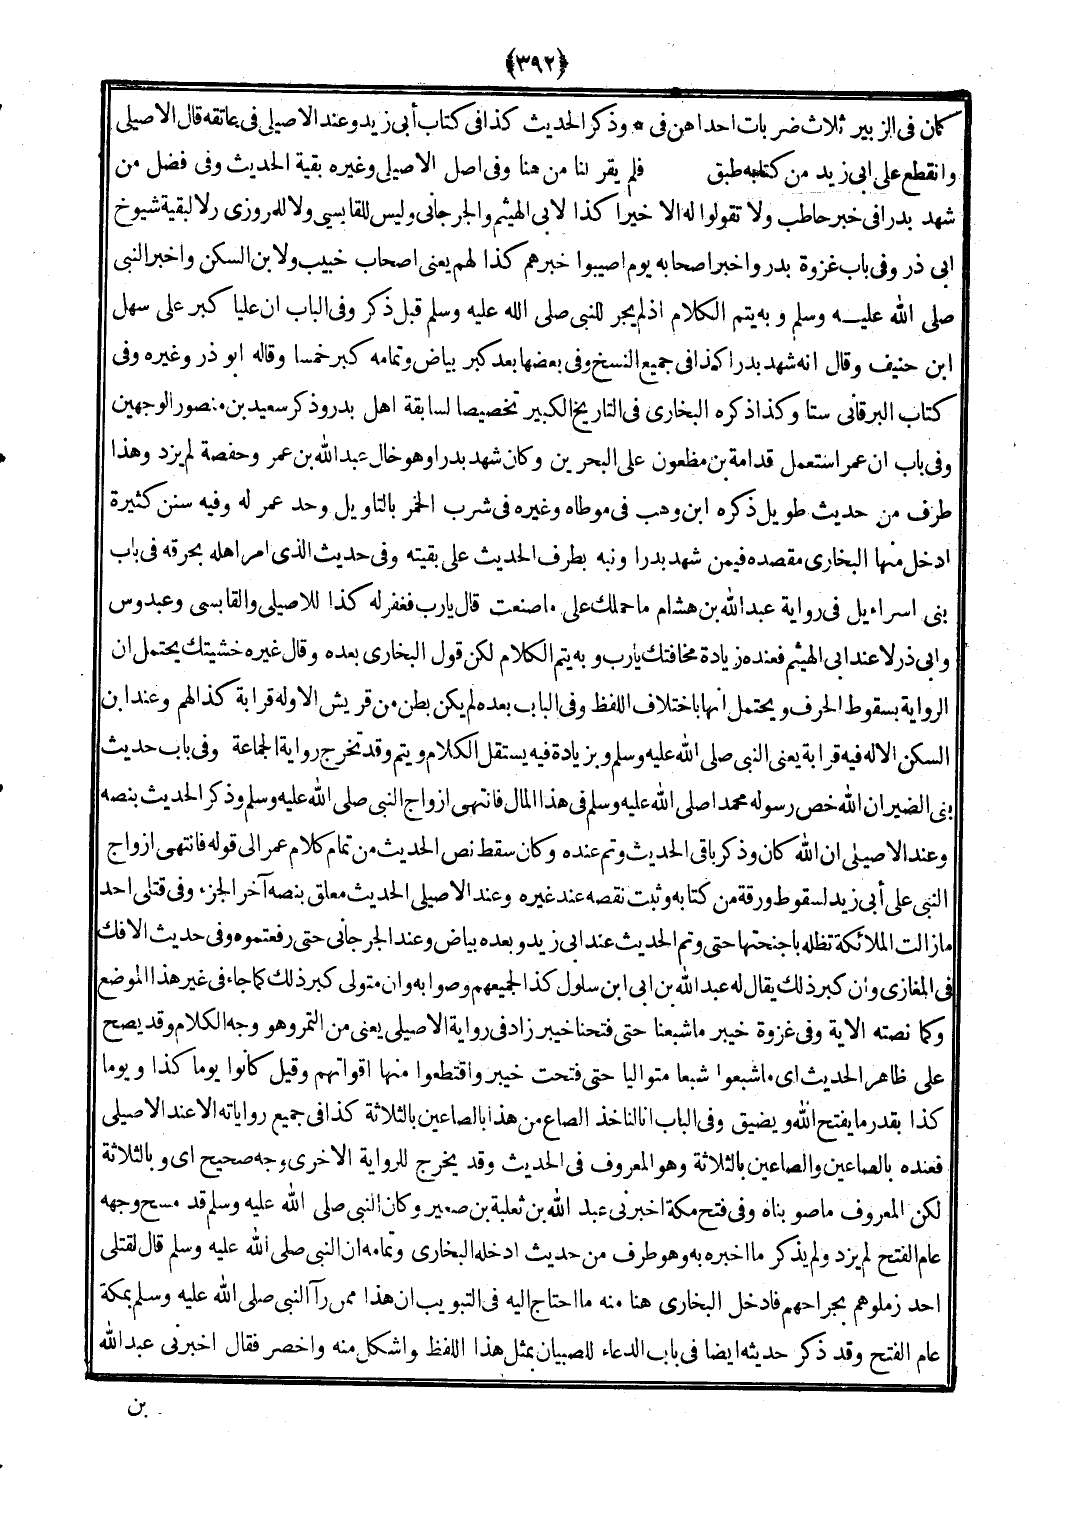 ﴿٣٩٢﴾
كان فى الزبير ثلاث ضربات احداهن فى * وذكر الحديث كذا فى كتاب أبى زيد وعند الاصيلى فى عاتقه قال الاصيلى
وانقطع على ابى زيد من كتابه طبق فلم يقر لنا من هنا وفى اصل الاصيلى وغيره بقية الحديث وفى فضل من
شهد بدرا فى خبر حاطب ولا تقولوا له الا خيرا كذا لابى الهيثم والجرجانى وليس للقابسى ولا للمروزى ولا لبقية شيوخ
ابى ذر وفى باب غزوة بدر واخبر اصحابه يوم اصيبوا خبرهم كذا لهم يعنى اصحاب خبيب ولابن السكن واخبر النبى
صلى الله عليه وسلم وبه يتم الكلام اذ لم يجر للنبى صلى الله عليه وسلم قبل ذكر وفى الباب ان عليا كبر على سهل
ابن حنيف وقال انه شهد بدرا كذا فى جميع النسخ وفى بعضها بعد كبر بياض وتمامه كبر خمسا وقاله ابو ذر وغيره وفى
كتاب البرقانى ستا وكذا ذكره البخارى فى التاريخ الكبير تخصيصا لسابقة اهل بدر وذكر سعيد بن منصور الوجهين
وفى باب ان عمر استعمل قدامة بن مظعون على البحرين وكان شهد بدرا وهو خال عبد الله بن عمر وحفصة لم يزد وهذا
طرف من حديث طويل ذكره ابن وهب فى موطاه وغيره فى شرب الخمر بالتاويل وحد عمر له وفيه سنن كثيرة
ادخل منها البخارى مقصده فيمن شهد بدرا ونبه بطرف الحديث على بقيته وفى حديث الذى امر اهله بحرقه فى باب
بنى اسراءيل فى رواية عبد الله بن هشام ما حملك على ما صنعت قال يارب فغفر له كذا للاصيلى والقابسى وعبدوس
وابى ذر لا عند ابى الهيثم فعنده زيادة مخافتك يارب وبه يتم الكلام لكن قول البخارى بعده وقال غيره خشيتك يحتمل ان
الرواية بسقوط الحرف ويحتمل انها باختلاف اللفظ وفى الباب بعده لم يكن بطن من قريش الا وله قرابة كذا لهم وعند ابن
السكن الا له فيه قرابة يعنى النبى صلى الله عليه وسلم وبزيادة فيه يستقل الكلام ويتم وقد تخرج رواية الجماعة وفى باب حديث
بنى الضير ان الله خص رسوله محمدا صلى الله عليه وسلم فى هذا المال فانتهى ازواج النبى صلى الله عليه وسلم وذكر الحديث بنصه
وعند الاصيلى ان الله كان وذكر باقى الحديث وتم عنده وكان سقط نص الحديث من تمام كلام عمر الى قوله فانتهى ازواج
النبى على أبى زيد لسقوط ورقة من كتابه وثبت نقصه عند غيره وعند الاصيلى الحديث معلق بنصه آخر الجزء وفى قتلى احد
مازالت الملائكة تظله باجنحتها حتى وتم الحديث عند ابى زيد وبعده بياض وعند الجرجانى حتى رفعتموه وفى حديث الافك
فى المغازى وان كبر ذلك يقال له عبد الله بن ابى ابن سلول كذا لجميعهم وصوابه وان متولى كبر ذلك كما جاء فى غير هذا الموضع
وكما نصته الاية وفى غزوة خيبر ماشبعنا حتى فتحنا خيبر زاد فى رواية الاصيلى يعنى من التمر وهو وجه الكلام وقد يصح
على ظاهر الحديث اى ماشبعوا شبعا متواليا حتى فتحت خيبر واقتطعوا منها اقواتهم وقيل كانوا يوما كذا ويوما
كذا بقدر ما يفتح الله ويضيق وفى الباب انا لناخذ الصاع من هذا بالصاعين بالثلاثة كذا فى جميع رواياته الا عند الاصيلى
فعنده بالصاعين والصاعين بالثلاثة وهو المعروف فى الحديث وقد يخرج للرواية الاخرى وجه صحيح اى وبالثلاثة
لكن المعروف ماصوبناه وفى فتح مكة اخبرنى عبد الله بن ثعلبة بن صعير وكان النبى صلى الله عليه وسلم قد مسح وجهه
عام الفتح لم يزد ولم يذكر ما اخبره به وهو طرف من حديث ادخله البخارى وتمامه ان النبى صلى الله عليه وسلم قال لقتلى
احد زملوهم بجراحهم فادخل البخارى هنا منه ما احتاج اليه فى التبويب ان هذا ممن رآ النبى صلى الله عليه وسلم بمكة
عام الفتح وقد ذكر حديثه ايضا فى باب الدعاء للصبيان بمثل هذا اللفظ واشكل منه واخصر فقال اخبرنى عبد الله
بن